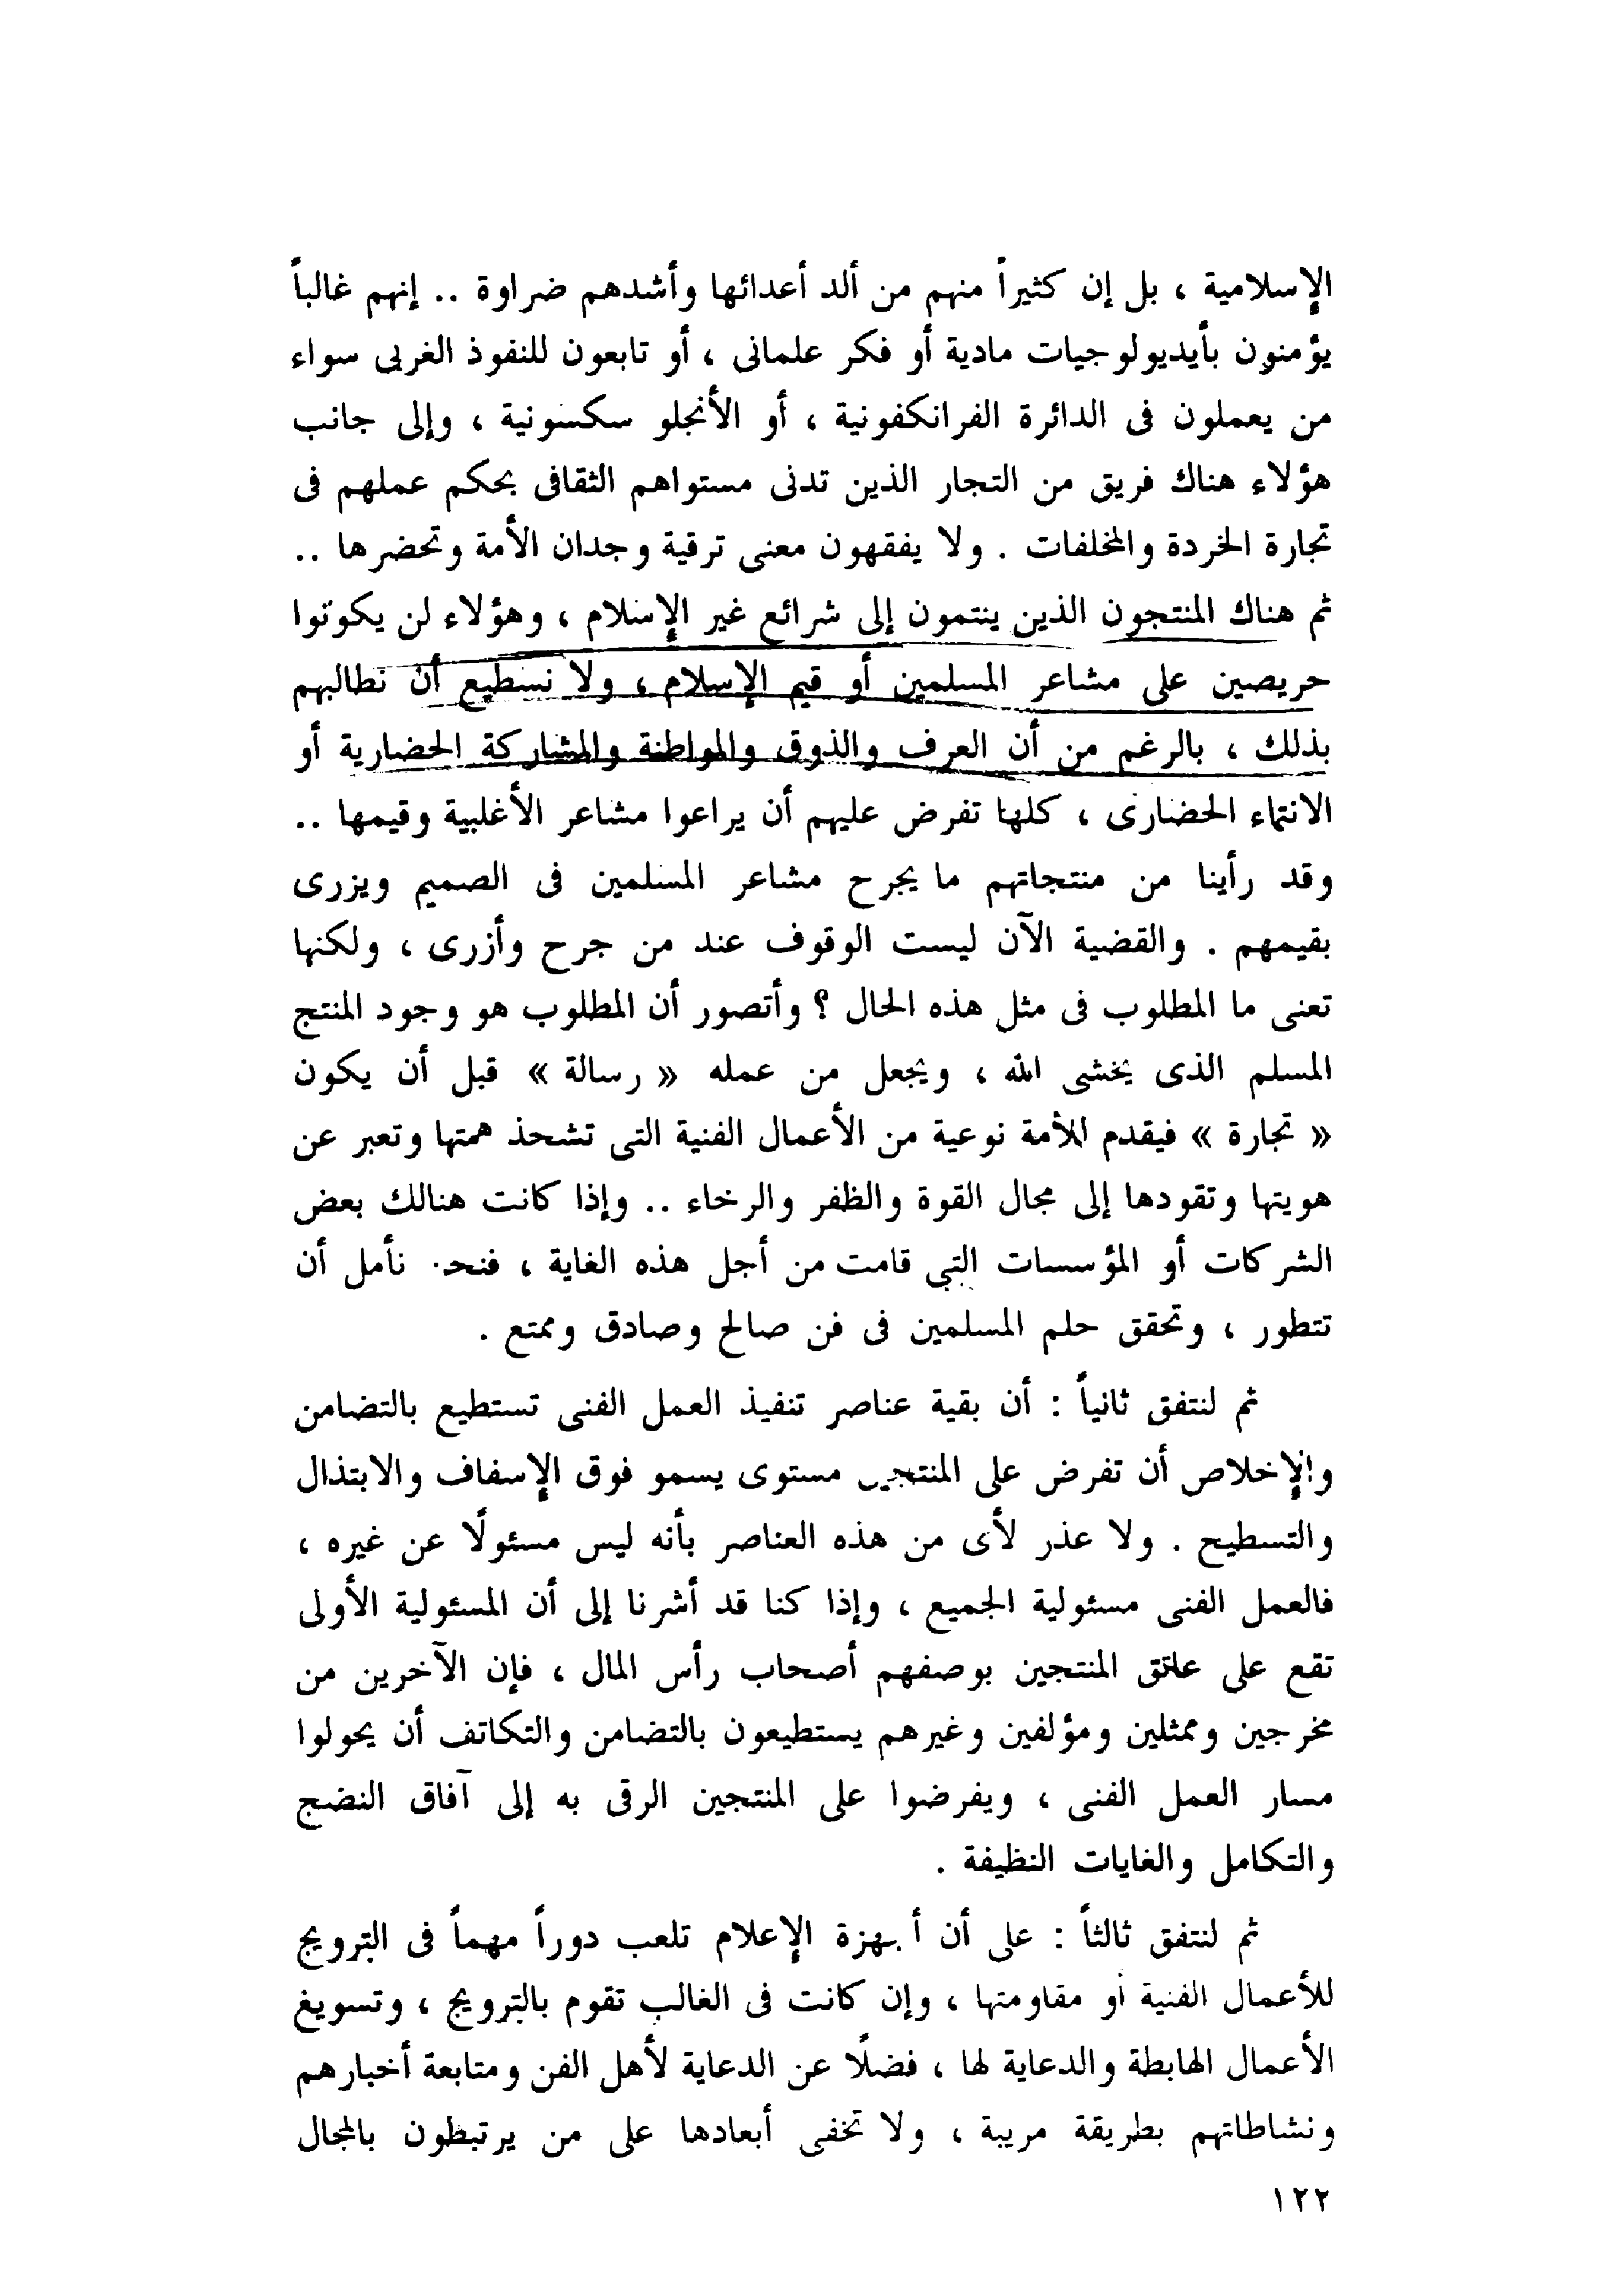 الإسلامية ، بل إن كثيراً منهم من ألد أعدائها وأشدهم ضراوة .. إنهم غالباً
يؤمنون بأيديولوجيات مادية أو فكر علمانى ، أو تابعون للنفوذ الغربى سواء
من يعملون فى الدائرة الفرانكفونية ، أو الأنجلو سكسونية ، وإلى جانب
هؤلاء هناك فريق من التجار الذين تدنى مستواهم الثقافى بحكم عملهم فى
تجارة الخردة والمخلفات . ولا يفقهون معنى ترقية وجدان الأمة وتحضرها ..
ثم هناك المنتجون الذين ينتمون إلى شرائع غير الإسلام ، وهؤلاء لن يكونوا
حريصين على مشاعر المسلمين أو قيم الإسلام ، ولا نستطيع أن نطالبهم
بذلك ، بالرغم من أن العرف والذوق والمواطنة والمشاركة الحضارية أو
الانتماء الحضارى ، كلها تفرض عليهم أن يراعوا مشاعر الأغلبية وقيمها ..
وقد رأينا من منتجاتهم ما يجرح مشاعر المسلمين فى الصميم ويزرى
بقيمهم . والقضية الآن ليست الوقوف عند من جرح وأزرى ، ولكنها
تعنى ما المطلوب فى مثل هذه الحال ؟ وأتصور أن المطلوب هو وجود المنتج
المسلم الذى يخشى الله ، ويجعل من عمله « رسالة » قبل أن يكون
« تجارة » فيقدم للأمة نوعية من الأعمال الفنية التى تشحذ همتها وتعبر عن
هويتها وتقودها إلى مجال القوة والظفر والرخاء .. وإذا كانت هنالك بعض
الشركات أو المؤسسات التي قامت من أجل هذه الغاية ، فنحن نأمل أن
تتطور ، وتحقق حلم المسلمين فى فن صالح وصادق وممتع .
ثم لنتفق ثانياً : أن بقية عناصر تنفيذ العمل الفنى تستطيع بالتضامن
والإخلاص أن تفرض على المنتجين مستوى يسمو فوق الإسفاف والابتذال
والتسطيح . ولا عذر لأى من هذه العناصر بأنه ليس مسئولًا عن غيره ،
فالعمل الفنى مسئولية الجميع ، وإذا كنا قد أشرنا إلى أن المسئولية الأولى
تقع على عاتق المنتجين بوصفهم أصحاب رأس المال ، فإن الآخرين من
مخرجين وممثلين ومؤلفين وغيرهم يستطيعون بالتضامن والتكاتف أن يحولوا
مسار العمل الفنى ، ويفرضوا على المنتجين الرقى به إلى آفاق النضج
والتكامل والغايات النظيفة .
ثم لنتفق ثالثاً : على أن أجهزة الإعلام تلعب دوراً مهماً فى الترويج
للأعمال الفنية أو مقاومتها ، وإن كانت فى الغالب تقوم بالترويج ، وتسويغ
الأعمال الهابطة والدعاية لها ، فضلًا عن الدعاية لأهل الفن ومتابعة أخبارهم
ونشاطاتهم بطريقة مريبة ، ولا تخفى أبعادها على من يرتبطون بالمجال
١٢٢